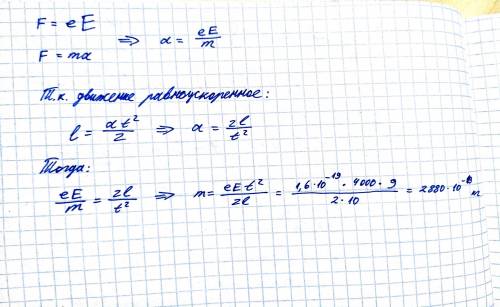 F = eE
F = ma
⇒ a = eE/m
Т.к. движение равноускоренное:
l = at²/2 ⇒ a = 2l/t²
Тогда:
eE/m = 2l/t² ⇒ m = eEt²/2l = 1,6·10⁻¹⁹·4000·9/2·10 = 2880·10⁻¹⁹